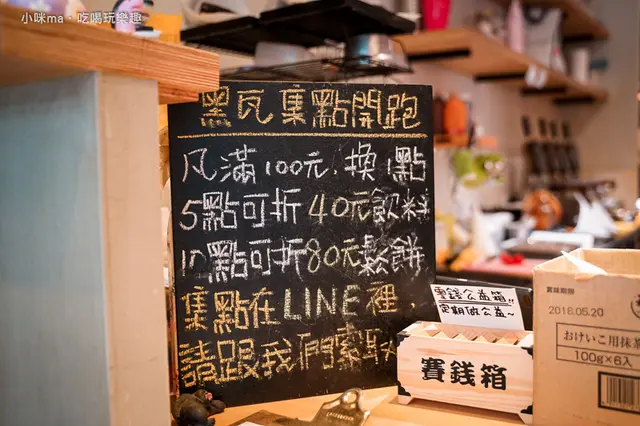 小咪ma・吃喝玩樂趣
黑瓦集點開跑
凡滿100元.換1點
5點可折40元飲料
10點可折80元鬆餅
集點在LINE裡,
請跟我們索取
零錢公益箱!!
定期做公益~
賽錢箱
賞味期限
2018.05.20
おけいこ用抹茶
100g×6入